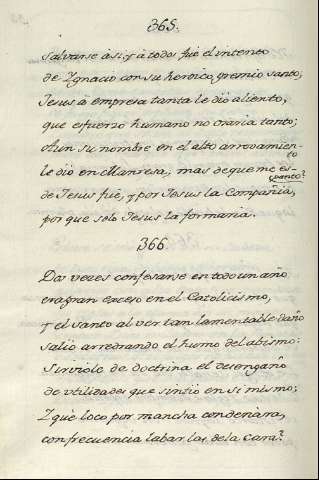 365.
salvarse à sí, y à todos fué el intento
de Ygnacio con su heroico gremio santo;
Jesus à empresa tanta le dió aliento,
que esfuerzo humano no osaria tanto;
Aun su nombre en el alto arrovamien-
to
le dió en Manresa; mas de que me es-
panto?
de Jesus fué, y por Jesus la Compañia,
por que solo Jesus la formaria.
366
Dos veces confesarse en todo un año
era gran exceso en el Catolicismo,
y el santo al ver tan lamentable daño
salió arredrando el humo del abismo:
Sirviole de doctrina el desengaño
de utilidades que sintió en si mismo;
Y qué loco por mancha condenára,
con frecuencia labarlos, de la cara?